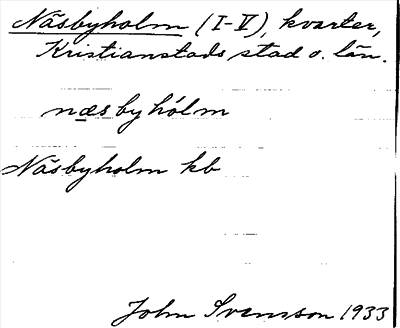 Näsbyholm (I-V), kvarter,
Kristianstads stad o. län.
næsbyhólm
Näsbyholm kb
John Svensson 1933